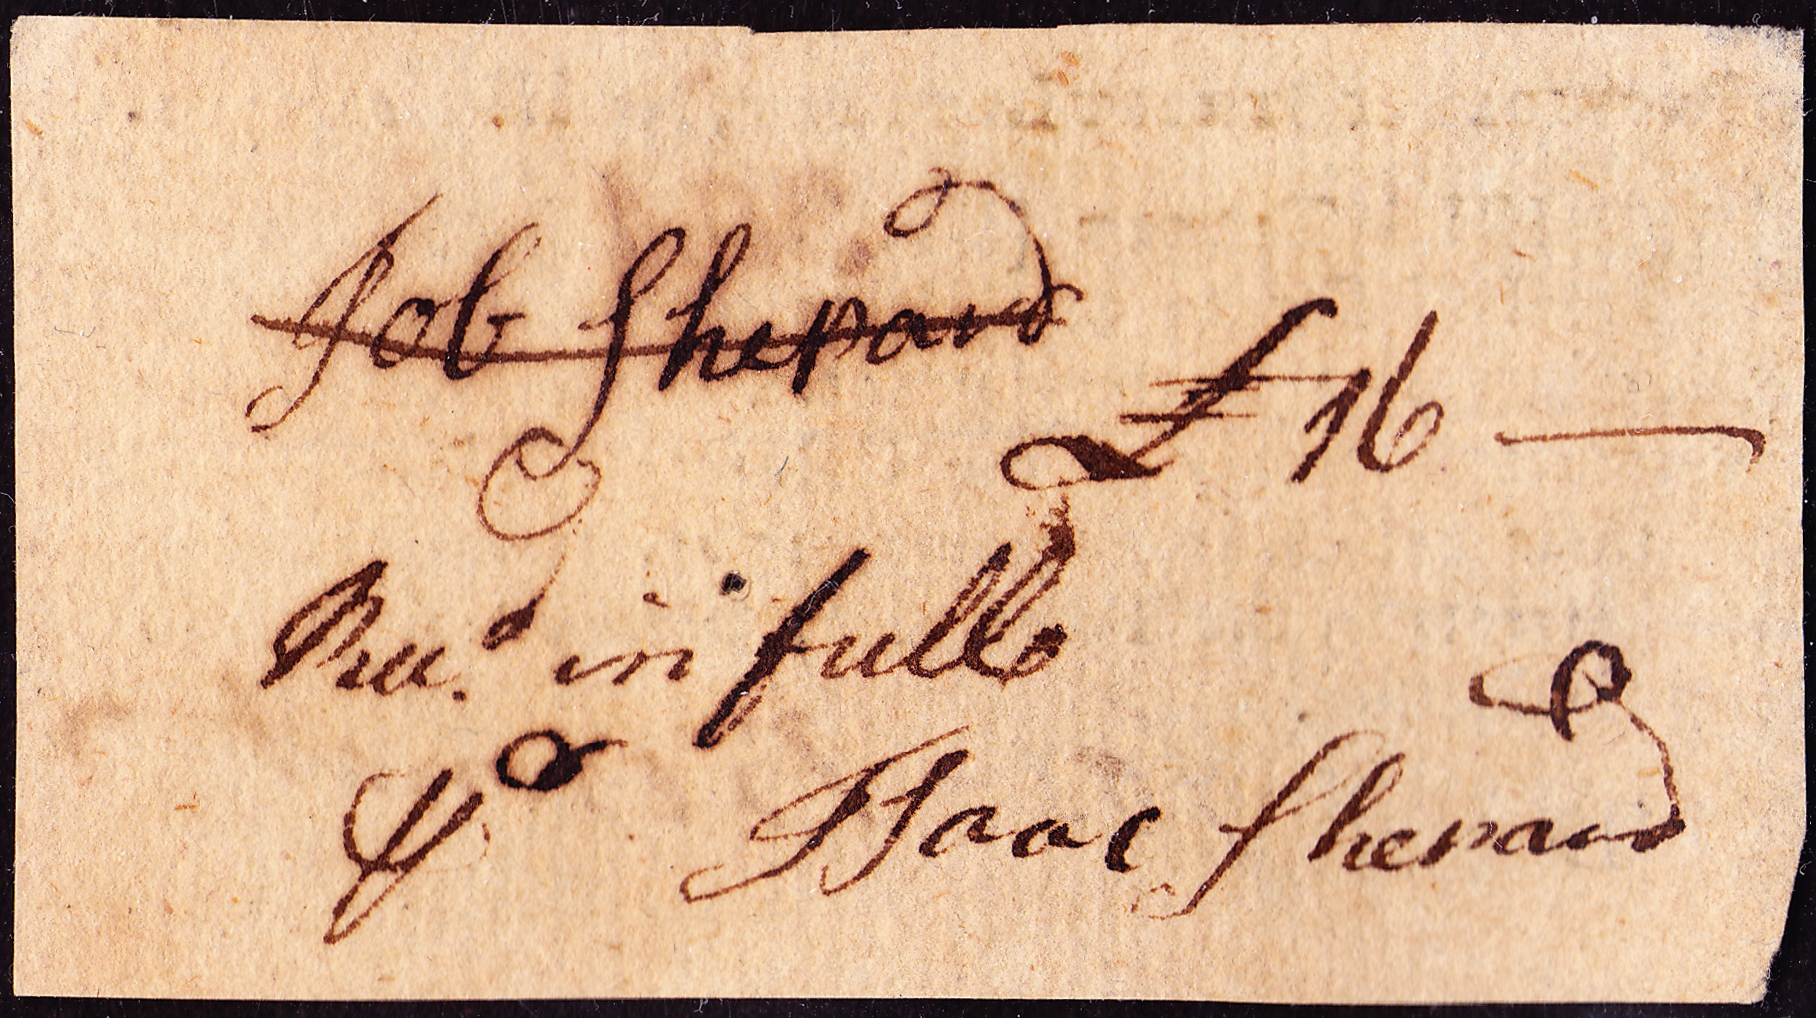 Job Shepard
£16 —
Recd. in full
⅌ Isaac Shepard